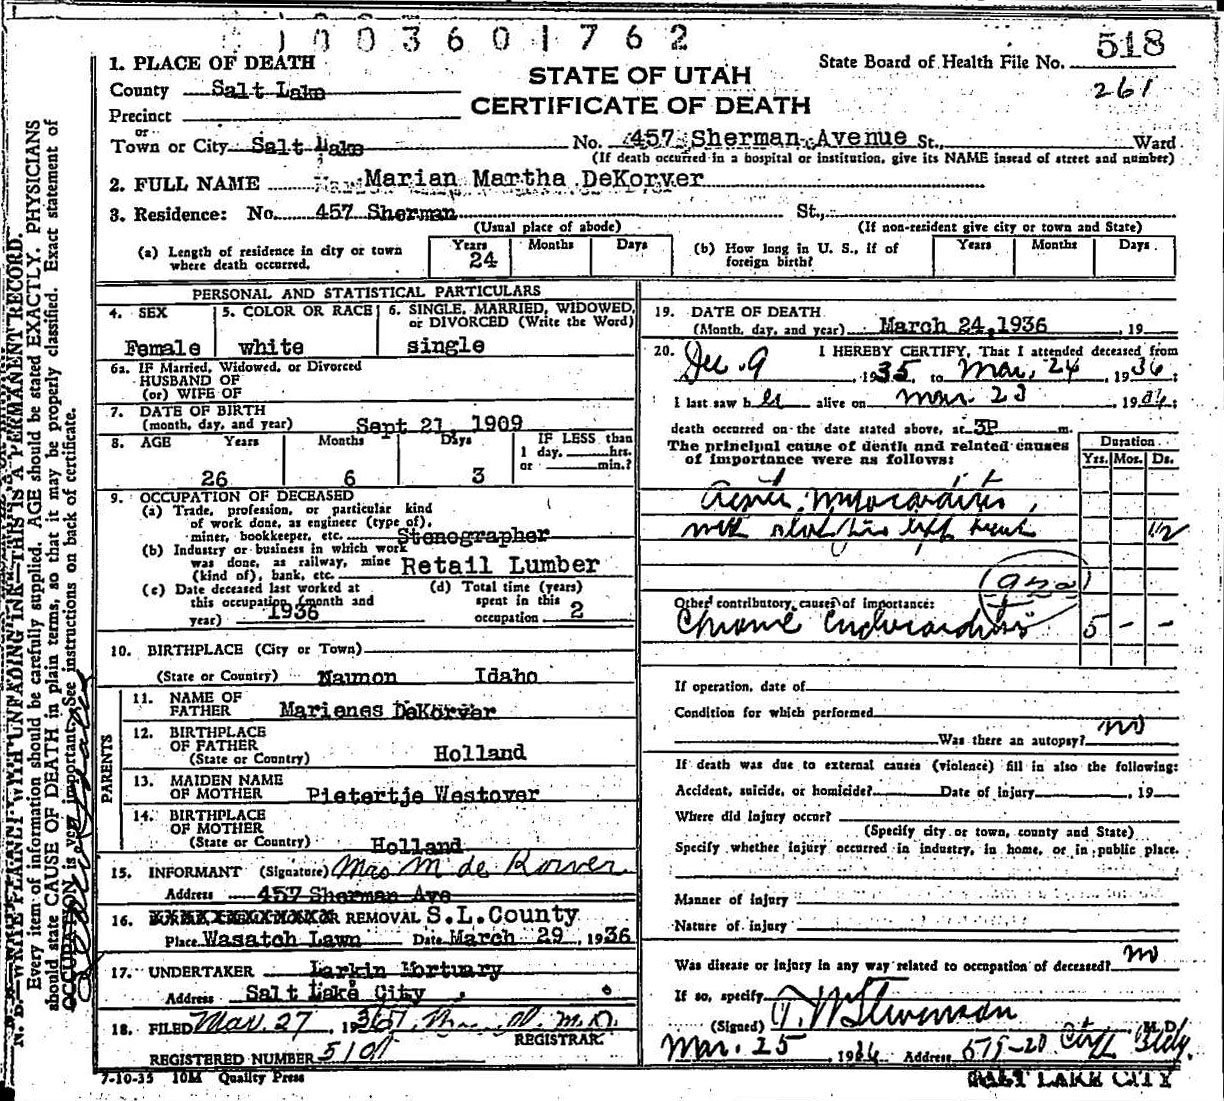 1003601762
518
261
1. PLACE OF DEATH
State Board of Health File No.
STATE OF UTAH
CERTIFICATE OF DEATH
County Salt Lake
Precinct
or
Town or City Salt Lake No. 457 Sherman Avenue St., Ward
(If death occurred in a hospital or institution, give its NAME insead of street and number)
2. FULL NAME Marian Martha DeKorver
3. Residence: No. 457 Sherman St.,
(Usual place of abode) (If non-resident give city or town and State)
(a) Length of residence in city or town where death occurred. Years 24 Months Days
(b) How long in U. S., if of foreign birth? Years Months Days
PERSONAL AND STATISTICAL PARTICULARS
4. SEX Female
5. COLOR OR RACE white
6. SINGLE, MARRIED, WIDOWED, or DIVORCED (Write the Word) single
6a. IF Married, Widowed, or Divorced
HUSBAND OF
(or) WIFE OF
7. DATE OF BIRTH
(month, day, and year) Sept 21, 1909
8. AGE Years 26 Months 6 Days 3
IF LESS than
1 day, hrs.
or min.?
9. OCCUPATION OF DECEASED
(a) Trade, profession, or particular kind
of work done, as engineer (type of),
miner, bookkeeper, etc. Stenographer
(b) Industry or business in which work
was done, as railway, mine
(kind of), bank, etc. Retail Lumber
(c) Date deceased last worked at
this occupation (month and
year) 1936
(d) Total time (years)
spent in this
occupation 2
10. BIRTHPLACE (City or Town)
(State or Country) Idaho
PARENTS
11. NAME OF
FATHER Marienes DeKorver
12. BIRTHPLACE
OF FATHER
(State or Country) Holland
13. MAIDEN NAME
OF MOTHER Pietertje Westover
14. BIRTHPLACE
OF MOTHER
(State or Country) Holland
15. INFORMANT (Signature) Mrs M de Korver
Address 457 Sherman Ave
16. OR REMOVAL S.L.County
Place Wasatch Lawn Date March 29, 1936
17. UNDERTAKER Larkin Mortuary
Address Salt Lake City
18. FILED Mar. 27, 1936
REGISTRAR.
REGISTERED NUMBER
7-10-35 10M Quality Press
19. DATE OF DEATH
(Month, day, and year) March 24, 1936, 19
20. I HEREBY CERTIFY, That I attended deceased from
Dec. 9, 1935, to Mar. 24, 1936;
I last saw her alive on Mar. 23 1936;
death occurred on the date stated above, at 3P m.
The principal cause of death and related causes
of importance were as follows:
Duration
Yrs. Mos. Ds.
Acute Myocarditis,
1/2
Other contributory causes of importance:
Chronic Endocarditis 5 - -
If operation, date of
Condition for which performed
Was there an autopsy? no
If death was due to external causes (violence) fill in also the following:
Accident, suicide, or homicide? Date of injury, 19
Where did injury occur?
(Specify city or town, county and State)
Specify whether injury occurred in industry, in home, or in public place.
Manner of injury
Nature of injury
Was disease or injury in any way related to occupation of deceased? no
If so, specify
(Signed) T. W Stevenson M. D.
Mar. 25, 1936 Address Bldg.
SALT LAKE CITY
N. B.—WRITE PLAINLY WITH UNFADING INK—THIS IS A PERMANENT RECORD.
Every item of information should be carefully supplied. AGE should be stated EXACTLY. PHYSICIANS
should state CAUSE OF DEATH in plain terms, so that it may be properly classified. Exact statement of
OCCUPATION is very important. See instructions on back of certificate.